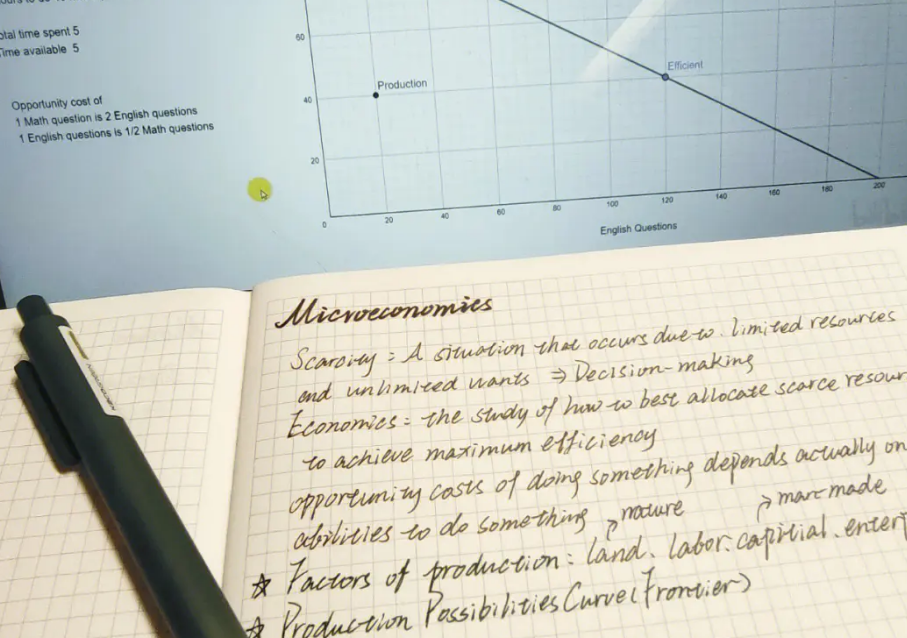 Total time spent 5
Time available 5
Opportunity cost of
1 Math question is 2 English questions
1 English questions is 1/2 Math questions
60
40
20
Production
Efficient
0 20 40 60 80 100 120 140 160 180 200
English Questions
Microeconomics
Scarcity: A situation that occurs due to limited resources
and unlimited wants ⇒ Decision-making
Economics: the study of how to best allocate scarce resour
to achieve maximum efficiency
opportunity costs of doing something depends actually on
abilities to do something
nature
man-made
☆ Factors of production: land. labor. capitial. enter
☆ Production Possibilities Curve (Frontier)